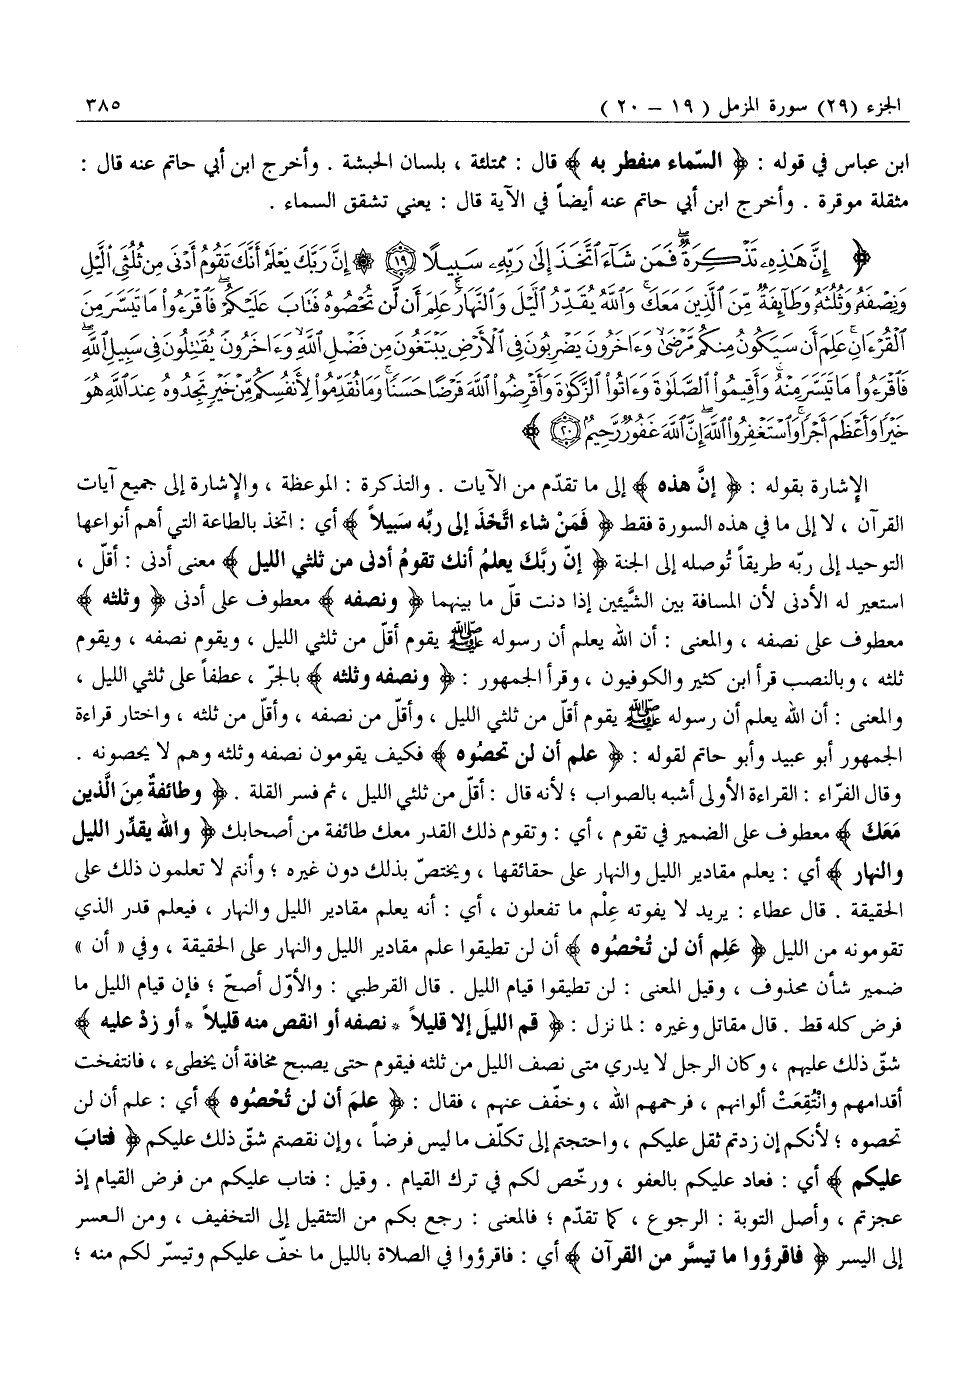 الجزء (٢٩) سورة المزمل ( ١٩ – ٢٠ )
٣٨٥
ابن عباس في قوله : ﴿ السّماء منفطر به ﴾ قال : ممتلئة ، بلسان الحبشة . وأخرج ابن أبي حاتم عنه قال :
مثقلة موقرة . وأخرج ابن أبي حاتم عنه أيضاً في الآية قال : يعني تشقق السماء .
﴿ إِنَّ هَـٰذِهِۦ تَذْكِرَةٌ ۖ فَمَن شَآءَ ٱتَّخَذَ إِلَىٰ رَبِّهِۦ سَبِيلًا ١٩ ۞ إِنَّ رَبَّكَ يَعْلَمُ أَنَّكَ تَقُومُ أَدْنَىٰ مِن ثُلُثَىِ ٱلَّيْلِ
وَنِصْفَهُۥ وَثُلُثَهُۥ وَطَآئِفَةٌ مِّنَ ٱلَّذِينَ مَعَكَ ۚ وَٱللَّهُ يُقَدِّرُ ٱلَّيْلَ وَٱلنَّهَارَ ۚ عَلِمَ أَن لَّن تُحْصُوهُ فَتَابَ عَلَيْكُمْ ۖ فَٱقْرَءُوا۟ مَا تَيَسَّرَ مِنَ
ٱلْقُرْءَانِ ۚ عَلِمَ أَن سَيَكُونُ مِنكُم مَّرْضَىٰ ۙ وَءَاخَرُونَ يَضْرِبُونَ فِى ٱلْأَرْضِ يَبْتَغُونَ مِن فَضْلِ ٱللَّهِ ۙ وَءَاخَرُونَ يُقَـٰتِلُونَ فِى سَبِيلِ ٱللَّهِ ۖ
فَٱقْرَءُوا۟ مَا تَيَسَّرَ مِنْهُ ۚ وَأَقِيمُوا۟ ٱلصَّلَوٰةَ وَءَاتُوا۟ ٱلزَّكَوٰةَ وَأَقْرِضُوا۟ ٱللَّهَ قَرْضًا حَسَنًا ۚ وَمَا تُقَدِّمُوا۟ لِأَنفُسِكُم مِّنْ خَيْرٍ تَجِدُوهُ عِندَ ٱللَّهِ هُوَ
خَيْرًا وَأَعْظَمَ أَجْرًا ۚ وَٱسْتَغْفِرُوا۟ ٱللَّهَ ۖ إِنَّ ٱللَّهَ غَفُورٌ رَّحِيمٌۢ ٢٠ ﴾
الإشارة بقوله : ﴿ إنَّ هذه ﴾ إلى ما تقدّم من الآيات . والتذكرة : الموعظة ، والإشارة إلى جميع آيات
القرآن ، لا إلى ما في هذه السورة فقط ﴿ فَمَنْ شاء اتَّخَذَ إلى ربِّه سَبيلاً ﴾ أي : اتخذ بالطاعة التي أهم أنواعها
التوحيد إلى ربّه طريقاً تُوصله إلى الجنة ﴿ إنّ ربَّكَ يعلمُ أنك تقومُ أدنى من ثلثي الليل ﴾ معنى أدنى : أقلّ ،
استعير له الأدنى لأن المسافة بين الشَّيئين إذا دنت قلّ ما بينهما ﴿ ونصفه ﴾ معطوف على أدنى ﴿ وثلثه ﴾
معطوف على نصفه ، والمعنى : أن الله يعلم أن رسوله ﷺ يقوم أقلّ من ثلثي الليل ، ويقوم نصفه ، ويقوم
ثلثه ، وبالنصب قرأ ابن كثير والكوفيون ، وقرأ الجمهور : ﴿ ونصفه وثلثه ﴾ بالجرّ ، عطفاً على ثلثي الليل ،
والمعنى : أن الله يعلم أن رسوله ﷺ يقوم أقلّ من ثلثي الليل ، وأقلّ من نصفه ، وأقلّ من ثلثه ، واختار قراءة
الجمهور أبو عبيد وأبو حاتم لقوله : ﴿ علم أن لن تحصُوه ﴾ فكيف يقومون نصفه وثلثه وهم لا يحصونه .
وقال الفرّاء : القراءة الأولى أشبه بالصواب ؛ لأنه قال : أقلّ من ثلثي الليل ، ثم فسر القلة . ﴿ وطائفةٌ مِنَ الَّذين
مَعَكَ ﴾ معطوف على الضمير في تقوم ، أي : وتقوم ذلك القدر معك طائفة من أصحابك ﴿ والله يقدِّر الليل
والنهار ﴾ أي : يعلم مقادير الليل والنهار على حقائقها ، ويختصّ بذلك دون غيره ؛ وأنتم لا تعلمون ذلك على
الحقيقة . قال عطاء : يريد لا يفوته عِلْم ما تفعلون ، أي : أنه يعلم مقادير الليل والنهار ، فيعلم قدر الذي
تقومونه من الليل ﴿ عَلِم أن لن تُحْصُوه ﴾ أن لن تطيقوا علم مقادير الليل والنهار على الحقيقة ، وفي « أن »
ضمير شأن محذوف ، وقيل المعنى : لن تطيقوا قيام الليل . قال القرطبي : والأوّل أصحّ ؛ فإن قيام الليل ما
فرض كله قط . قال مقاتل وغيره : لما نزل : ﴿ قم الليلَ إلا قليلاً * نصفه أو انقص منه قليلاً * أو زدْ عليه ﴾
شقّ ذلك عليهم ، وكان الرجل لا يدري متى نصف الليل من ثلثه فيقوم حتى يصبح مخافة أن يخطىء ، فانتفخت
أقدامهم وانْتُقِعَتْ ألوانهم ، فرحمهم الله ، وخفّف عنهم ، فقال : ﴿ علمَ أن لن تُحْصُوه ﴾ أي : علم أن لن
تحصوه ؛ لأنكم إن زدتم ثقل عليكم ، واحتجتم إلى تكلّف ما ليس فرضاً ، وإن نقصتم شقّ ذلك عليكم ﴿ فتابَ
عليكم ﴾ أي : فعاد عليكم بالعفو ، ورخّص لكم في ترك القيام . وقيل : فتاب عليكم من فرض القيام إذ
عجزتم ، وأصل التوبة : الرجوع ، كما تقدّم ؛ فالمعنى : رجع بكم من التثقيل إلى التخفيف ، ومن العسر
إلى اليسر ﴿ فاقرؤوا ما تيسَّر من القرآن ﴾ أي : فاقرؤوا في الصلاة بالليل ما خفّ عليكم وتيسّر لكم منه ؛